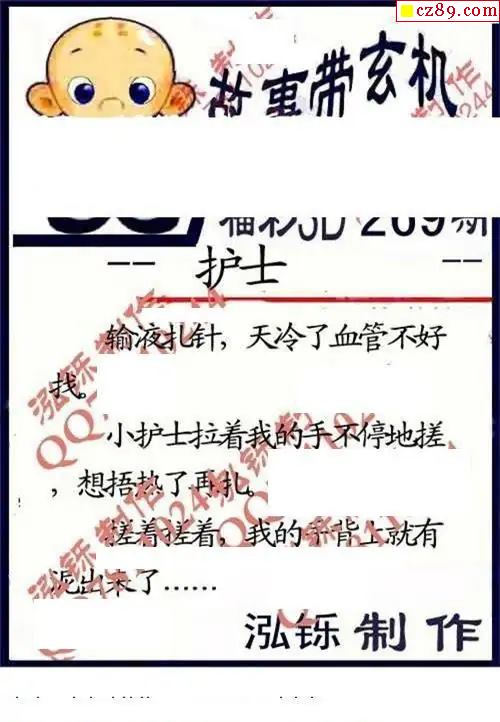 cz89.com
故事带玄机
福彩3D 209期
-- 护士 --
输液扎针，天冷了血管不好
找。
小护士拉着我的手不停地搓
，想捂热了再扎。
搓着搓着，我的手背上就有
泥出来了……
泓铄制作